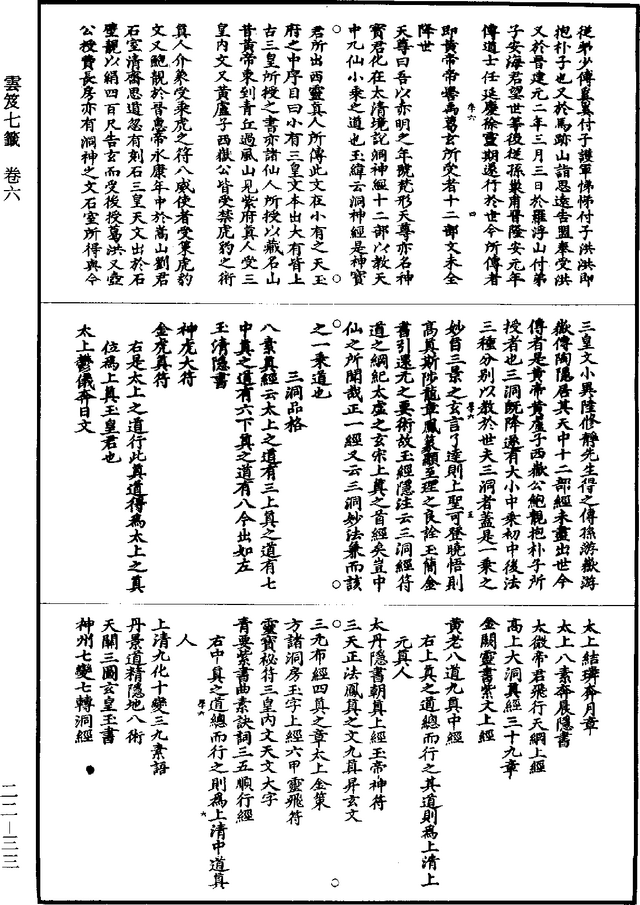 雲笈七籤　卷六
從弟少傳奚奚付子護軍悌悌付子洪洪即
抱朴子也又於馬跡山詣思遠告盟奉受洪
又於晉建元二年三月三日於羅浮山付弟
子安海君望世等後從孫巢甫晉隆安元年
傳道士任延慶徐靈期遂行於世今所傳者
即黃帝帝嚳禹葛玄所受者十二部文未全
降世
天尊曰吾以赤明之年號梵形天尊亦名神
寶君化在太清境記洞神經十二部以教天
中九仙小乘之道也玉緯云洞神經是神寶
君所出西靈真人所傳此文在小有之天玉
府之中序目曰小有三皇文本出大有皆上
古三皇所授之書亦諸仙人所授以藏名山
昔黃帝東到青丘過風山見紫府真人受三
皇內文又黃盧子西嶽公皆受禁虎豹之術
真人介象受乘虎之符八威使者受策虎豹
文又鮑靚於晉惠帝永康年中於嵩山劉君
石室清齋思道忽有刻石三皇天文出於石
壁靚以絹四百尺告玄而受後授葛洪又壺
公授費長房亦有洞神之文石室所得與今
三皇文小異陸修靜先生得之傳孫游嶽游
嶽傳陶隱居其天中十二部經未盡出世今
傳者是黃帝黃盧子西嶽公鮑靚抱朴子所
授者也三洞既降遂有大小中乘初中後法
三種分別以教於世夫三洞者蓋是一乘之
妙旨三景之玄言了達則上聖可登曉悟則
高真斯陟龍章鳳篆顯至理之良詮玉簡金
書引還元之要術故玉經隱注云三洞經符
道之綱紀太虛之玄宗上真之首經矣豈中
仙之所聞哉正一經又云三洞妙法兼而該
之一乘道也
三洞品格
八素真經云太上之道有三上真之道有七
中真之道有六下真之道有八今出如左
玉清隱書
神虎大符
金虎真符
右是太上之道行此真道得為太上之真
位為上真玉皇君也
太上鬱儀奔日文
太上結璘奔月章
太上八素奔晨隱書
太微帝君飛行天綱上經
高上大洞真經三十九章
金闕靈書紫文上經
黃老八道九真中經
右上真之道總而行之其道則為上清上
元真人
太丹隱書朝真上經玉帝神符
三天正法鳳真之文九真昇玄文
三九布經四真之章太上金策
方諸洞房玉字上經六甲靈飛符
靈寶祕符三皇內文天文大字
青要紫書曲素訣詞三五順行經
右中真之道總而行之則為上清中道真
人
上清九化十變三九素語
丹景道精隱地八術
天關三圖玄皇玉書
神州七變七轉洞經
二二—三三